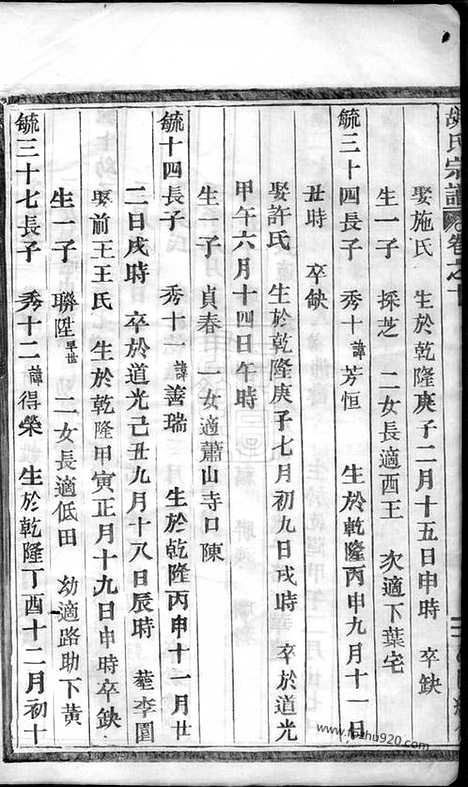 胡氏宗譜 卷之十
娶施氏 生於乾隆庚子二月十五日申時 卒缺
生一子 採芝 二女長適西王 次適下葉宅
毓三十四長子 秀十諱芳恒 生於乾隆丙申九月十一日
丑時 卒缺
娶許氏 生於乾隆庚子七月初九日戌時 卒於道光
甲午六月十四日午時
生一子 貞春 一女適蕭山寺口陳
毓十四長子 秀十一諱善瑞 生於乾隆丙申十一月廿
二日戌時 卒於道光己丑九月十八日辰時 塟李園
娶前王王氏 生於乾隆甲寅正月十九日申時卒缺
生一子 聯陞早世 二女長適低田 幼適路助下黄
毓三十七長子 秀十二諱得榮 生於乾隆丁酉十二月初十
www.fushu920.com